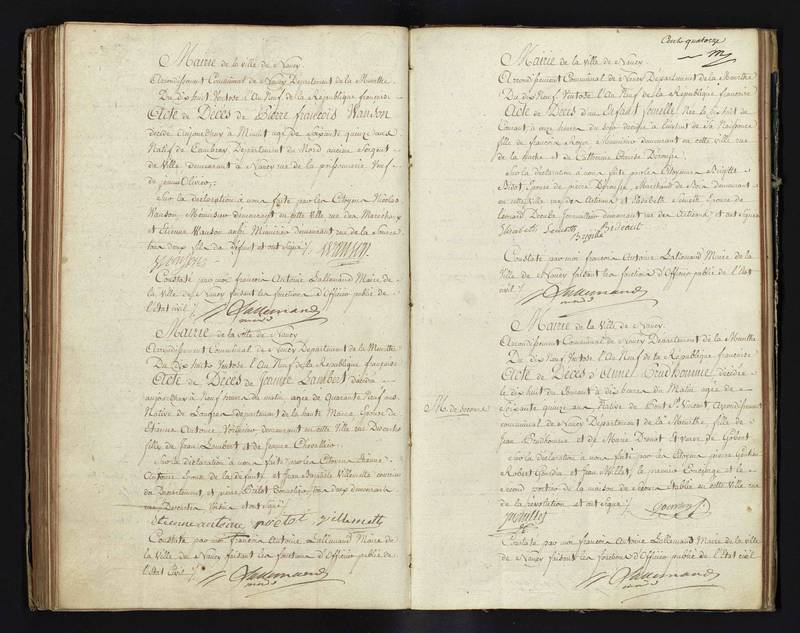 Mairie de la ville de Nancy
Arrondissement Communal de Nancy Département de la Meurthe.
Du dix huit Ventose l'An Neuf de la République françoise
Acte de Décès de Pierre françois Wanson
décédé aujourdhuy à Minuit agé de soixante quinze ans
Natif de Cambray Département du Nord ancien Sergent
de Ville demeurant à Nancy rue de la prisonnerie Veuf
de jeanne Olivier
Sur la déclaration à nous faite par les Citoyens Nicolas
Wanson, Menuisier demeurant en cette Ville, rue des Marechaux
et Etienne Wanson aussi Menuisier demeurant rue de la Source
tous deux fils du défunt et ont signé /. Wanson
Constaté par moi françois Antoine Lallemand Maire de
la Ville de Nancy faisant les fonction d'Officier public de
l'état civil /.
Lallemand
Mairie de la ville de Nancy
Arrondissement Communal de Nancy Département de la Meurthe
Du dix huit Ventose l'An Neuf de la République françoise
Acte de Décès de Jeanne Lambert décédée
aujourdhuy à Neuf heures du matin agée de Quarante Neuf ans
Native de Langres Département de la haute Marne, Epouse de
Etienne Antoine demeurant en cette Ville
fille de Jean Lambert et de Jeanne Chevallier
Sur la déclaration à nous faite par les Citoyens Etienne
Antoine Epoux de la défunte et Jean Villemette
du Département et pierre tous deux demeurant
et ont signé /.
etienne antoine noetat villemette
Constaté par moi francois Antoine Lallemand Maire de
la Ville de Nancy faisant les fonctions d'Officier public de
l'état Civil /.
Lallemand
Cent quatorze
Mairie de la Ville de Nancy.
Arrondissement Communal de Nancy Département de la Meurthe
Du dix Neuf Ventose l'An Neuf de la République françoise
Acte de Décès d'un Enfant femelle Née le dix huit du
Courant à onze heures du soir décédée à l'instant de sa Naissance
fille de francois Royer, Menuisier demeurant en cette ville rue
de la hache et de Catherine
Sur la déclaration à nous faite par les Citoyennes Brigitte
Bidot Epouse de pierre Marchand de Bois demeurant
en cette ville rue des Artisans et Elisabeth Epouse de
Leonard demeurant rue des Artisans et ont signé
Elisabeth
Brigitte
Constaté par moi francois Antoine Lallemand Maire de la
Ville de Nancy faisant les fonction d'Officier public de l'état
civil /.
Lallemand
Mairie de la Ville de Nancy.
Arrondissement Communal de Nancy Département de la Meurthe
Du dix Neuf Ventose l'An Neuf de la République françoise
Acte de Décès d'Anne Prudhomme décédée
le dix huit du Courant à dix heures du Matin agée de
M. de secours
Soixante quinze ans Native de Pont St Vincent, Arrondissement
communal de Nancy Département de la Meurthe, fille de
Jean Prudhomme et de Marie Drouot et Veuve de Gobert
Sur la déclaration à nous faite par les Citoyens
Robert et Jean Millet, le premier et le
second portier de la maison de Secours Etablie en cette Ville rue
de la révolution et ont signé /.
Constaté par moi francois Antoine Lallemand Maire de la ville
de Nancy faisant les fonctions d'Officier public de l'état civil
Lallemand